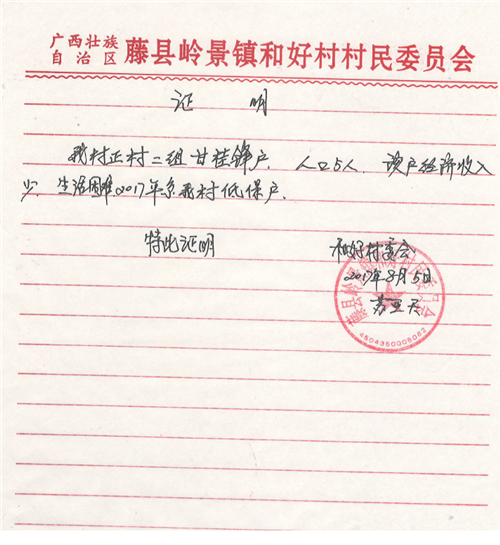 广西壮族
自治区 藤县岭景镇和好村村民委员会
证 明
我村正村二组甘桂锦户、人口5人、该户经济收入
少、生活困难、2017年系我村低保户、
特此证明
和好村委会
2017年8月5日
4504350006082